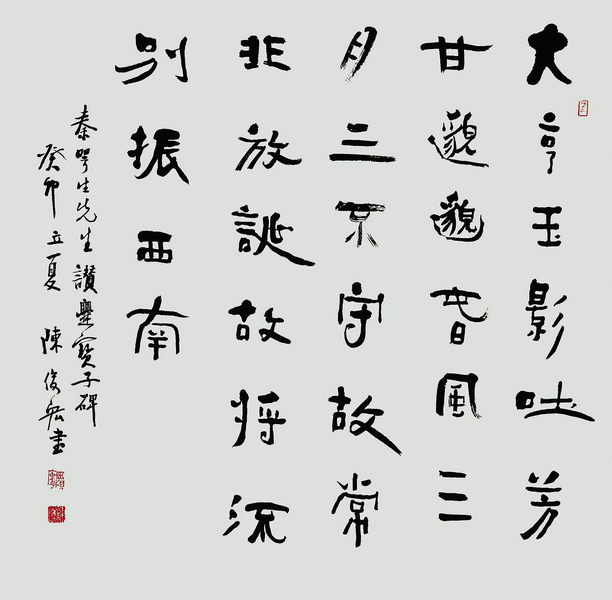 大亨玉影吐芳
甘邈邈春風三
月三不守故常
非放誕故將流
别振西南
秦咢生先生讚爨寶子碑
癸卯立夏 陳俊宏書